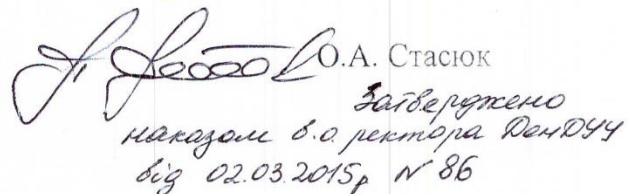 О.А. Стасюк
Затверджено
наказом в.о. ректора ДонДУУ
від 02.03.2015р N 86